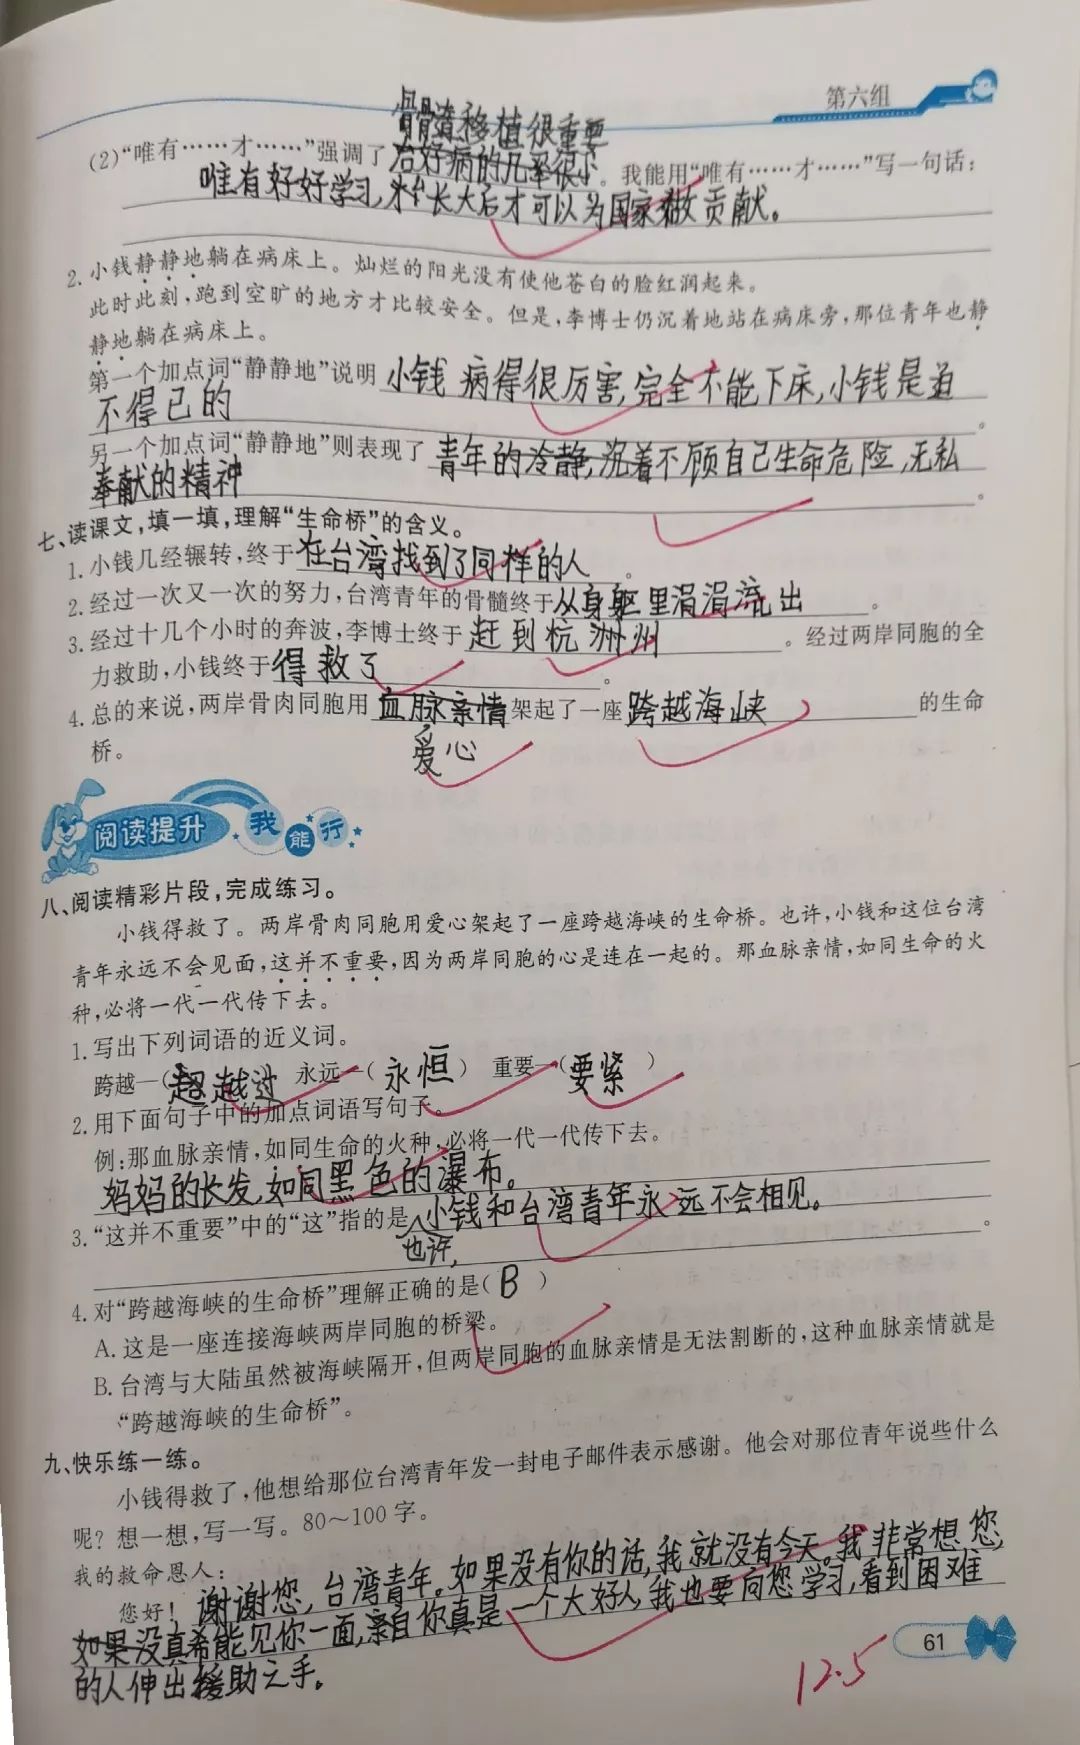 第六组
骨髓移植很重要
(2)“唯有……才……”强调了治好病的几率很小。我能用“唯有……才……”写一句话：
唯有好好学习,长大后才可以为国家做贡献。
2.小钱静静地躺在病床上。灿烂的阳光没有使他苍白的脸红润起来。
此时此刻,跑到空旷的地方才比较安全。但是,李博士仍沉着地站在病床旁,那位青年也静
静地躺在病床上。
第一个加点词“静静地”说明小钱病得很厉害,完全不能下床,小钱是迫
不得已的。
另一个加点词“静静地”则表现了青年的冷静,沉着不顾自己生命危险,无私
奉献的精神。
七、读课文,填一填,理解“生命桥”的含义。
1.小钱几经辗转,终于在台湾找到了同样的人。
2.经过一次又一次的努力,台湾青年的骨髓终于从身躯里涓涓流出。
3.经过十几个小时的奔波,李博士终于赶到杭州。经过两岸同胞的全
力救助,小钱终于得救了。
4.总的来说,两岸骨肉同胞用血脉亲情架起了一座跨越海峡的生命
爱心
桥。
阅读提升 我能行
八、阅读精彩片段,完成练习。
小钱得救了。两岸骨肉同胞用爱心架起了一座跨越海峡的生命桥。也许,小钱和这位台湾
青年永远不会见面,这并不重要,因为两岸同胞的心是连在一起的。那血脉亲情,如同生命的火
种,必将一代一代传下去。
1.写出下列词语的近义词。
跨越—(超越过) 永远—(永恒) 重要—(要紧)
2.用下面句子中的加点词语写句子。
例:那血脉亲情,如同生命的火种,必将一代一代传下去。
妈妈的长发,如同黑色的瀑布。
3.“这并不重要”中的“这”指的是小钱和台湾青年永远不会相见。
也许,
。
4.对“跨越海峡的生命桥”理解正确的是(B)
A.这是一座连接海峡两岸同胞的桥梁。
B.台湾与大陆虽然被海峡隔开,但两岸同胞的血脉亲情是无法割断的,这种血脉亲情就是
“跨越海峡的生命桥”。
九、快乐练一练。
小钱得救了,他想给那位台湾青年发一封电子邮件表示感谢。他会对那位青年说些什么
呢?想一想,写一写。80～100字。
我的救命恩人：
您好!谢谢您,台湾青年。如果没有你的话,我就没有今天。我非常想您,
如果没真希能见你一面,亲自你真是一个大好人,我也要向您学习,看到困难
的人伸出援助之手。
61
12.5